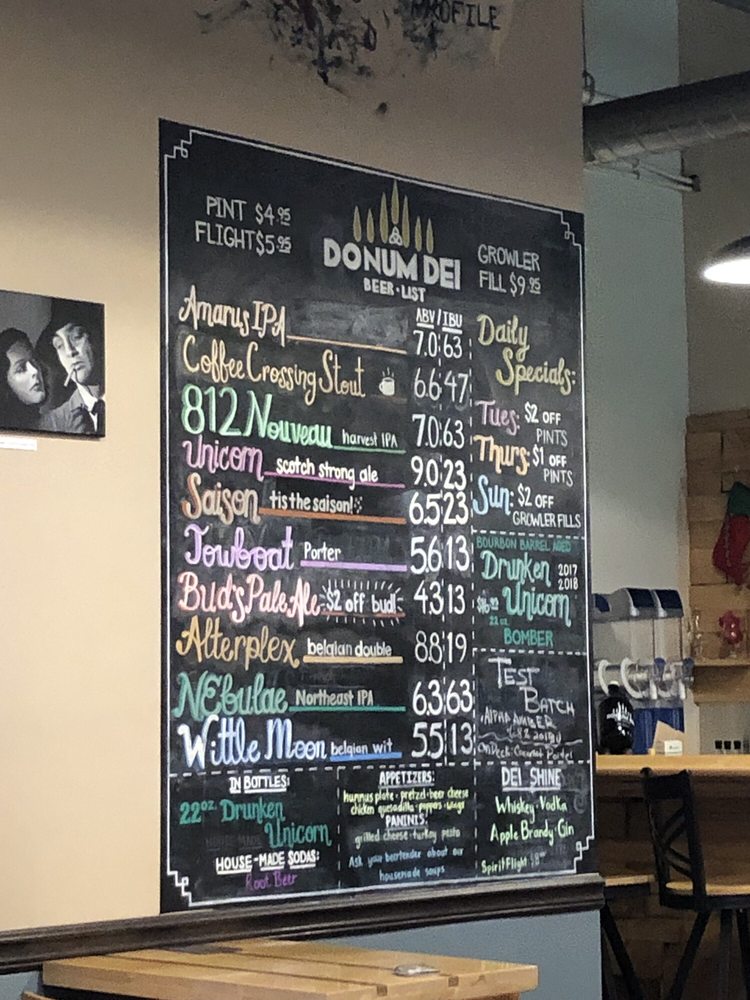 PROFILE
PINT $4.95
FLIGHT $5.95
DONUM DEI
BEER·LIST
GROWLER
FILL $9.95
ABV/IBU
Amarus IPA 7.0 63
Coffee Crossing Stout 6.6 47
812 Nouveau harvest IPA 7.0 63
Unicorn scotch strong ale 9.0 23
Saison tis the saison! 6.5 23
Towboat Porter 5.6 13
Bud's Pale Ale $2 off bud! 4.3 13
Alterplex belgian double 8.8 19
NEbulae Northeast IPA 6.3 63
Wittle Moon belgian wit 5.5 13
Daily
Specials:
Tues: $2 OFF
PINTS
Thurs: $1 OFF
PINTS
Sun: $2 OFF
GROWLER FILLS
BOURBON BARREL AGED
Drunken 2017
2018
Unicorn
22oz.
BOMBER
TEST
BATCH
ALPHA AMBER
On Deck: Coconut Porter
IN BOTTLES:
22oz. Drunken
Unicorn
HOUSE-MADE SODAS:
Root Beer
APPETIZERS:
hummus plate · pretzel·beer cheese
chicken quesadilla · poppers · wings
PANINIS:
grilled cheese · turkey pesto
Ask your beertender about our
housemade soups
DEI SHINE
Whiskey · Vodka
Apple Brandy · Gin
Spirit Flight